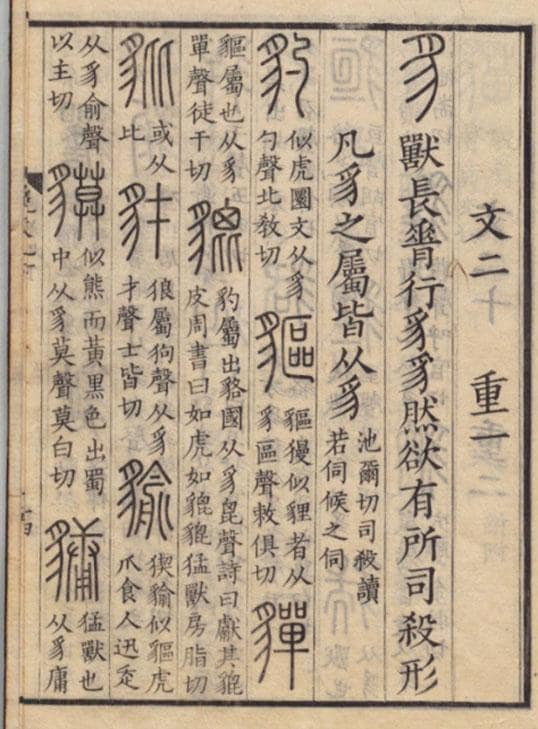 文二十 重一
豸 獸長脊行豸豸然欲有所司殺形
凡豸之屬皆从豸 池爾切司殺讀
若伺候之伺
豹 似虎圜文从豸
勺聲北教切
貙 貙獌似貍者从
豸區聲敕俱切
貚
貙屬也从豸
單聲徒干切
貔 豹屬出貉國从豸𣬉聲詩曰獻其貔
皮周書曰如虎如貔貔猛獸房脂切
豼 或从
比
豺 狼屬狗聲从豸
才聲士皆切
貐 猰貐似貙虎
爪食人迅走
从豸俞聲
以主切
貘 似熊而黃黑色出蜀
中从豸莫聲莫白切
𧴄 猛獸也
从豸庸